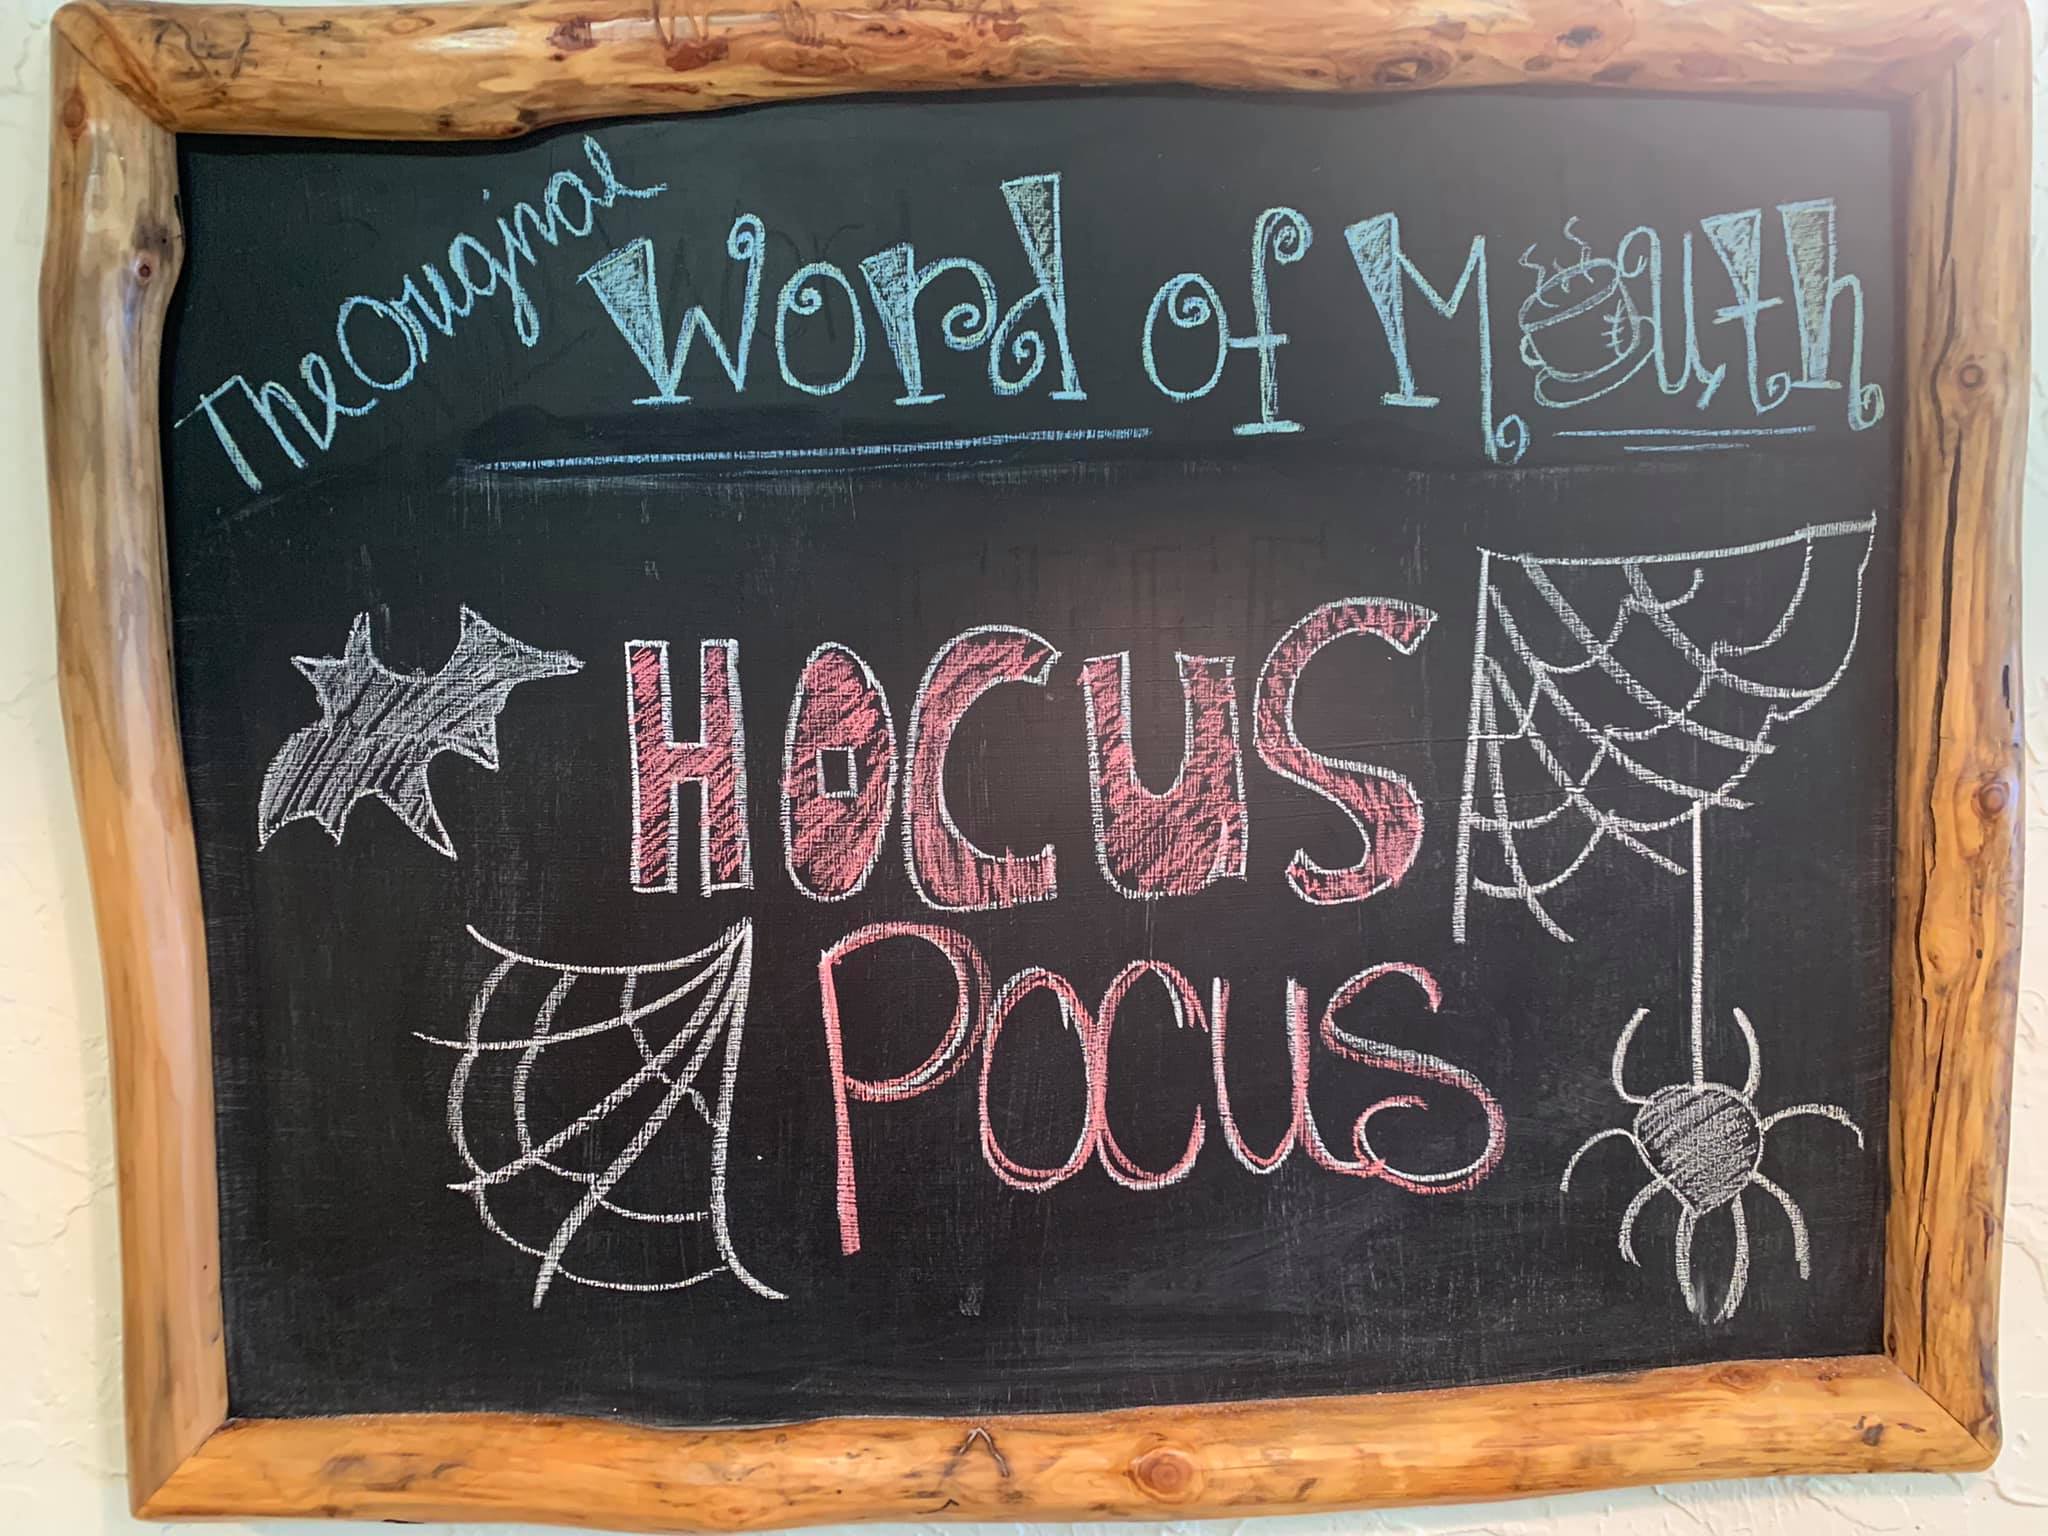 The Original Word of Mouth
HOCUS
POCUS